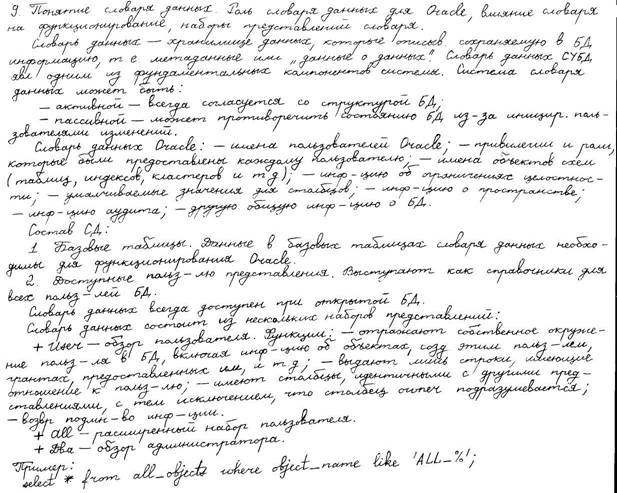 9. Понятие словаря данных. Роль словаря данных для Oracle, влияние словаря
на функционирование, наборы представлений словаря.
Словарь данных — хранилище данных, которые описыв. сохраняемую в БД
информацию, т е метаданные или „данные о данных". Словарь данных СУБД
явл одним из фундаментальных компонентов системы. Система словаря
данных может быть:
— активной — всегда согласуется со структурой БД;
— пассивной — может противоречить состоянию БД из-за иницшр. поль-
зователями изменений.
Словарь данных Oracle: — имена пользователей Oracle; — привилегии и роли,
которые были предоставлены каждому пользователю; — имена объектов схем
(таблиц, индексов, кластеров и т д); — инф-цию об ограничениях целостнос-
ти; — умалчиваемые значения для столбцов; — инф-цию о пространстве;
— инф-цию аудита; — другую общую инф-цию о БД.
Состав СД:
1 Базовые таблицы. Данные в базовых таблицах словаря данных необхо-
димы для функционирования Oracle.
2. Доступные польз-лю представления. Выступают как справочники для
всех польз-лей БД.
Словарь данных всегда доступен при открытой БД.
Словарь данных состоит из нескольких наборов представлений:
+ User — обзор пользователя. Функции: — отражают собственное окруже-
ние польз-ля в БД, включая инф-цию об объектах, созд этим польз-лем,
грантах, предоставленных им, и т д; — выдают лишь строки, имеющие
отношение к польз-лю; — имеют столбцы, идентичными с другими пред-
ставлениями, с тем исключением, что столбец owner подразумевается;
— возвр подмн-во инф-ции.
+ All — расширенный набор пользователя.
+ Dba — обзор администратора.
Пример:
select * from all_objects where object_name like 'ALL_%';